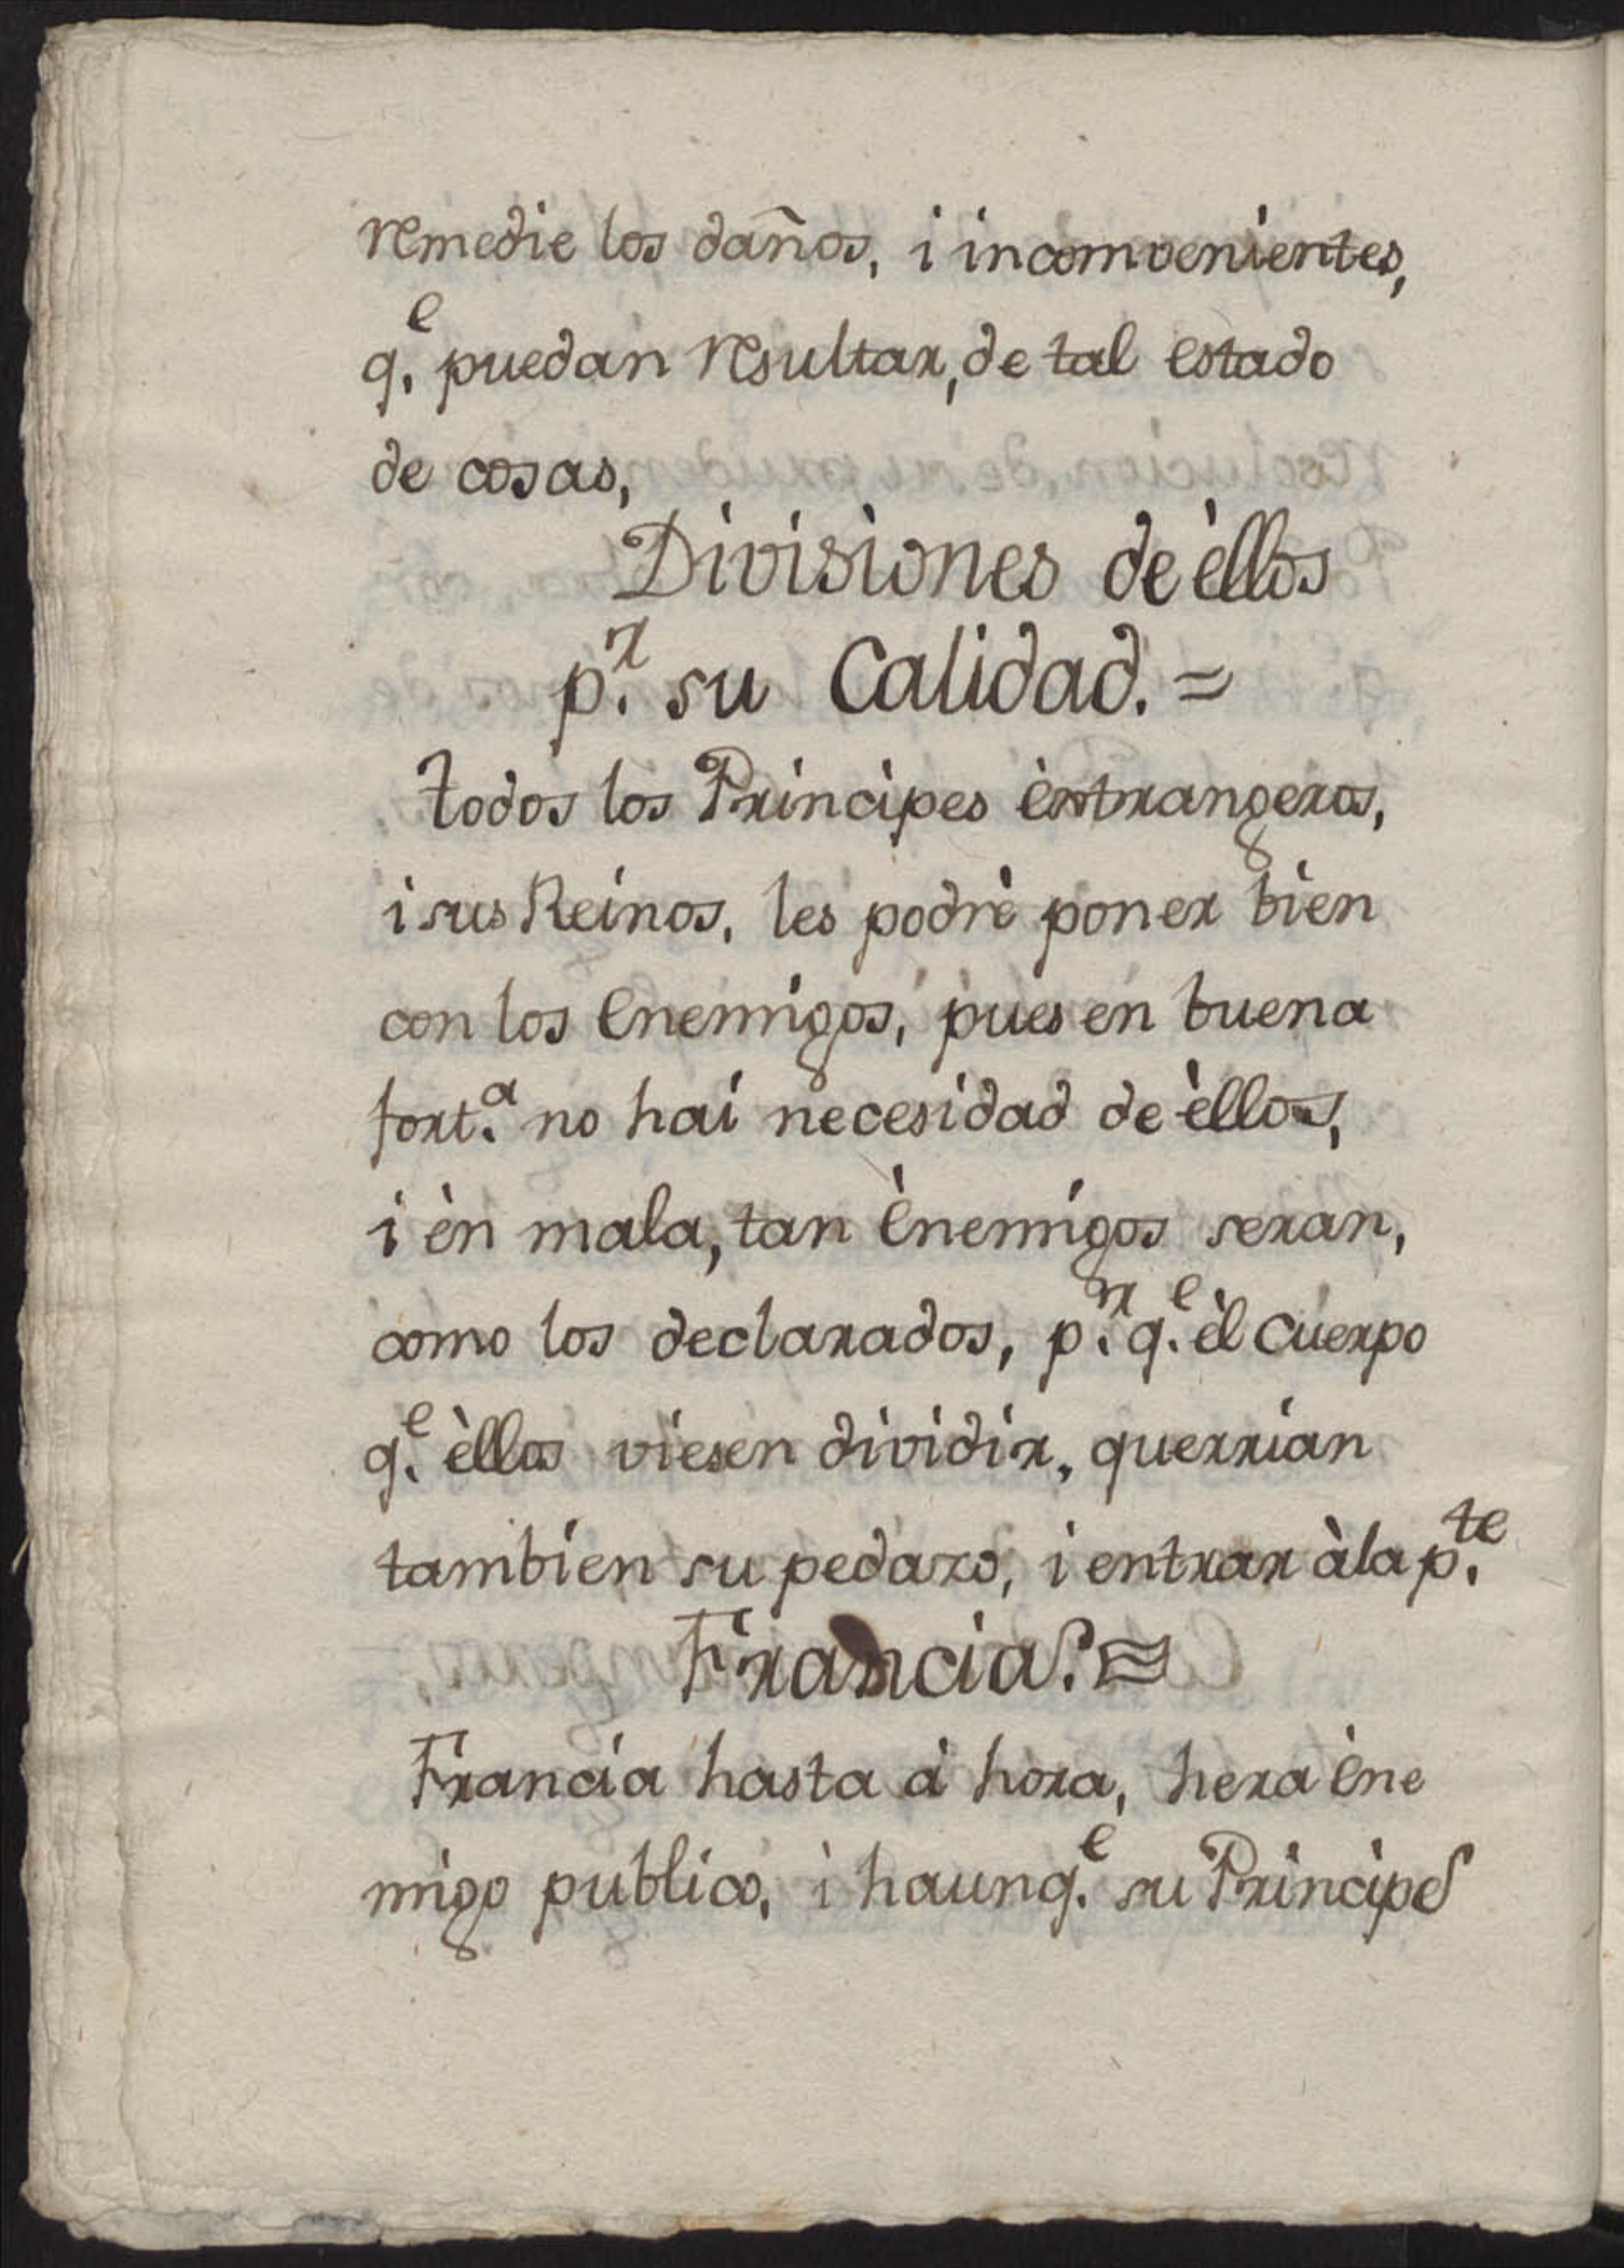 remedie los daños, i incomvenientes,
q.e puedan resultar, de tal estado
de cosas,
Divisiones de èllos
p.r su Calidad. =
todos los Principes èstrangeros,
i sus Reinos, les podrè poner bien
con los Enemigos, pues en buena
fort.a no hai necesidad de èllos,
i èn mala, tan Ènemigos seran,
como los declarados, p.r q.e èl cuerpo
q.e èllos viesen dividir, querrian
tambien su pedazo, i entrar àla p.te
Francia. =
Francia hasta à hora, hera ène
migo publico, i haunq.e su Principe